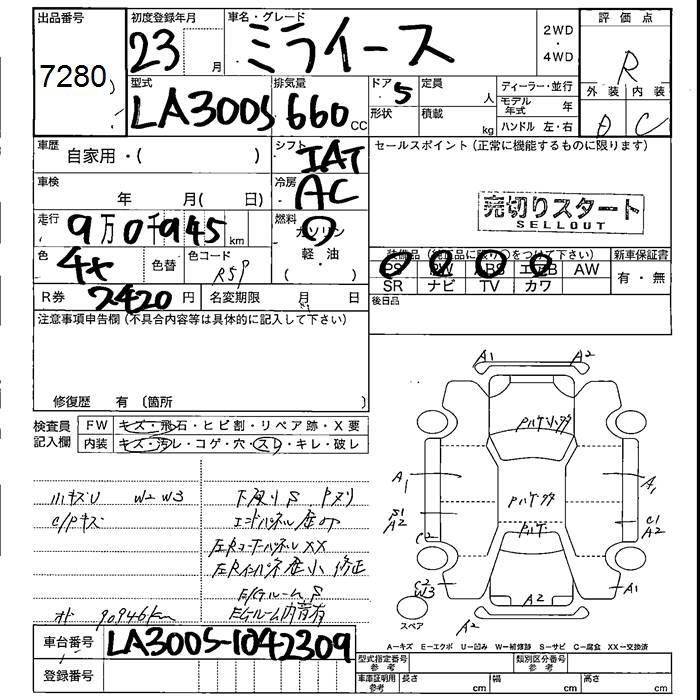 出品番号 初度登録年月 車名・グレード 評価点
7280 23 月 ミライース 2WD・4WD R
型式 排気量 ドア 定員 ディーラー・並行 外装 内装
LA300S 660 cc 5 人 モデル年式 年 C
形状 積載 kg ハンドル 左・右
車歴 自家用・( ) シフト IAT セールスポイント(正常に機能するものに限ります)
車検 年 月( 日) 冷房 AC
売切りスタート
SELLOUT
走行 9万0千945 km 燃料 ガソリン
軽・油
色 色替 色コード 装備品(純正品に限り○をつけて下さい) 新車保証書
PS PW ABS エアB AW 有・無
SR ナビ TV カワ
R券 7420円 名変期限 月 日 後日品
注意事項申告欄(不具合内容等は具体的に記入して下さい)
修復歴 有 〔箇所 〕
検査員 FW キズ・飛石・ヒビ割・リペア跡・X要
記入欄 内装 キズ・汚レ・コゲ・穴・スレ・キレ・破レ
小キズU W2 W3
エンドパネル
左Rコーナーパネル XX
左Rインパネ 歪小 修正
E/Gルーム S
E/Gルーム内音有
90946km
A1 A2
A1 A1
S1 A2 C1 A2
C2
C2 W3 A1
A2
A2
スペア
車台番号 LA300S-1042309
A−キズ E−エクボ U−凹み W−補修跡 S−サビ C−腐食 XX−交換済
登録番号
型式指定番号 参考 類別区分番号 参考
車庫証明用 参考 長さ cm 幅 cm 高さ cm